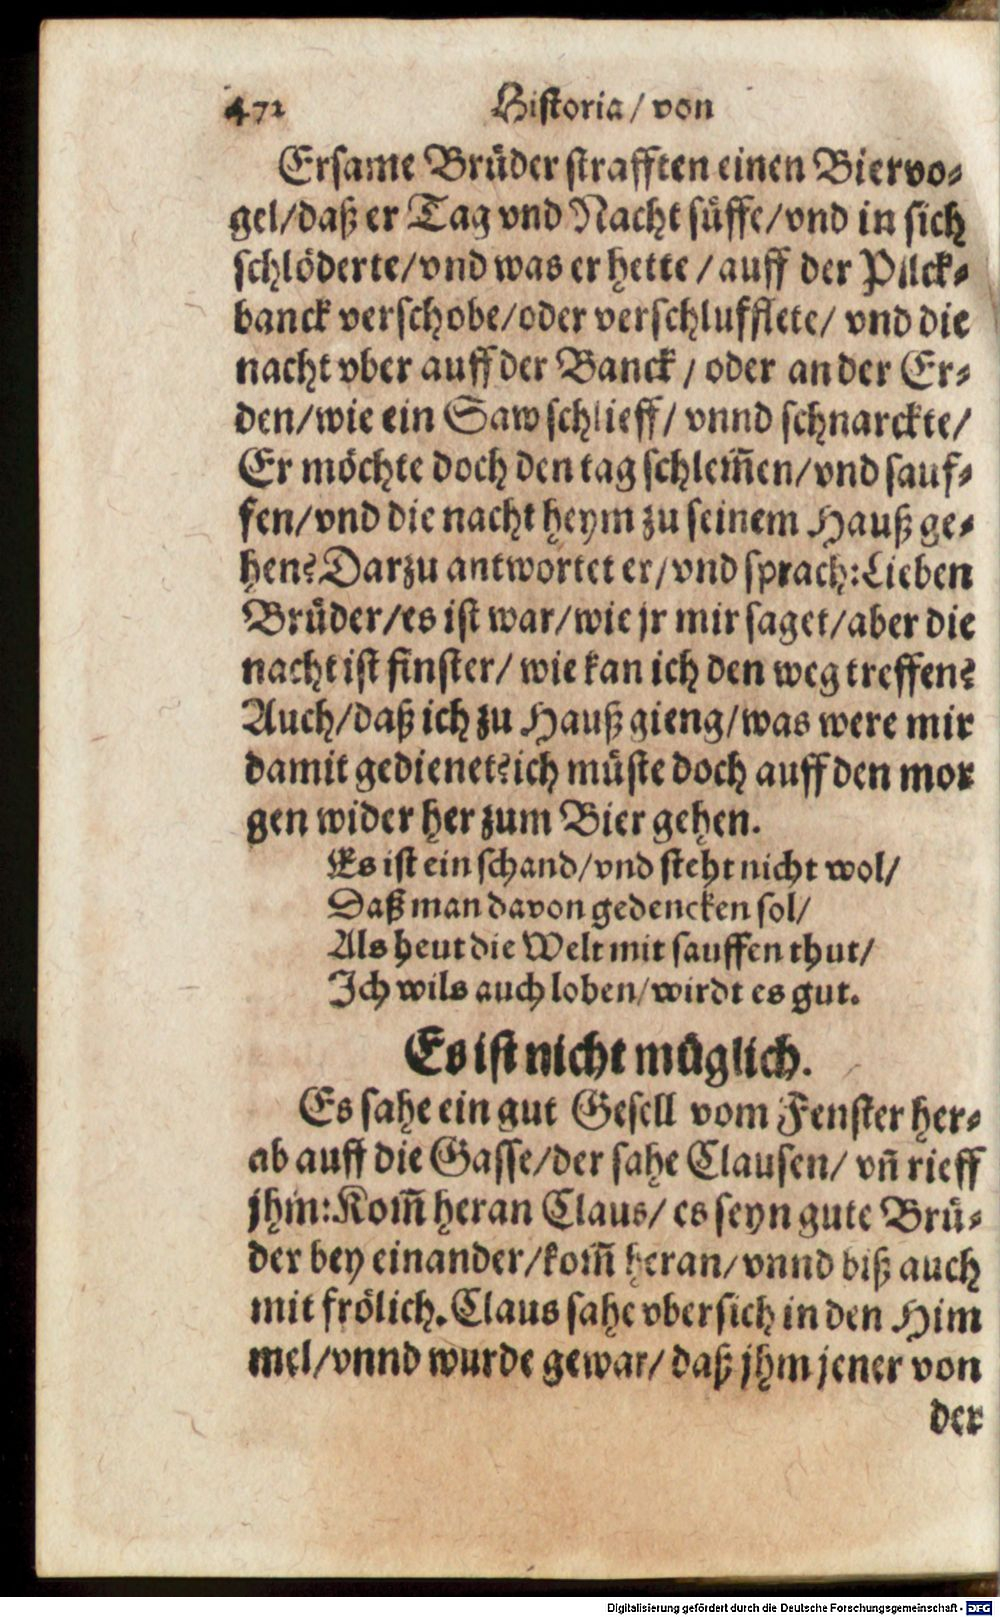 472 Historia / von
Ersame Brüder strafften einen Biervo⸗
gel/daß er Tag vnd Nacht süffe/vnd in sich
schlöderte/vnd was er hette / auff der Pilck⸗
banck verschobe/oder verschlufflete/ vnd die
nacht vber auff der Banck / oder an der Er⸗
den/wie ein Saw schlieff/ vnnd schnarckte/
Er möchte doch den tag schlem̄en/vnd sauf⸗
fen/vnd die nacht heym zu seinem Hauß ge⸗
hen? Darzu antwortet er/vnd sprach: Lieben
Brüder/es ist war/wie jr mir saget/aber die
nacht ist finster/ wie kan ich den weg treffen?
Auch/daß ich zu Hauß gieng/was were mir
damit gedienet? ich müste doch auff den mor
gen wider her zum Bier gehen.
Es ist ein schand/vnd steht nicht wol/
Daß man davon gedencken sol/
Als heut die Welt mit sauffen thut/
Ich wils auch loben/wirdt es gut.
Es ist nicht müglich.
Es sahe ein gut Gesell vom Fenster her⸗
ab auff die Gasse/der sahe Clausen/ vn̄ rieff
jhm: Kom̄ heran Claus/ es seyn gute Brü⸗
der bey einander/kom̄ heran/vnnd biß auch
mit frölich. Claus sahe vber sich in den Him
mel/vnnd wurde gewar/ daß jhm jener von
der
Digitalisierung gefördert durch die Deutsche Forschungsgemeinschaft - DFG